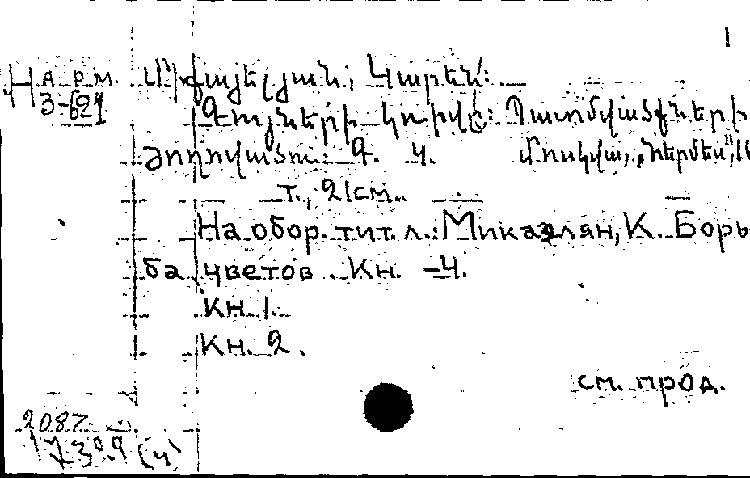 1
Н арм. Միքայելյան, Կարեն:
3-621 Գույների կռիվը: Պատմվածքների
ժողովածու: Գ. 4. Մոսկվա, „Ներմես",
т., 21 см.
На обор. тит. л.: Микаэлян, К. Борь
ба цветов. Кн. -4.
Кн. 1.
Кн. 2.
см. прод.
2087